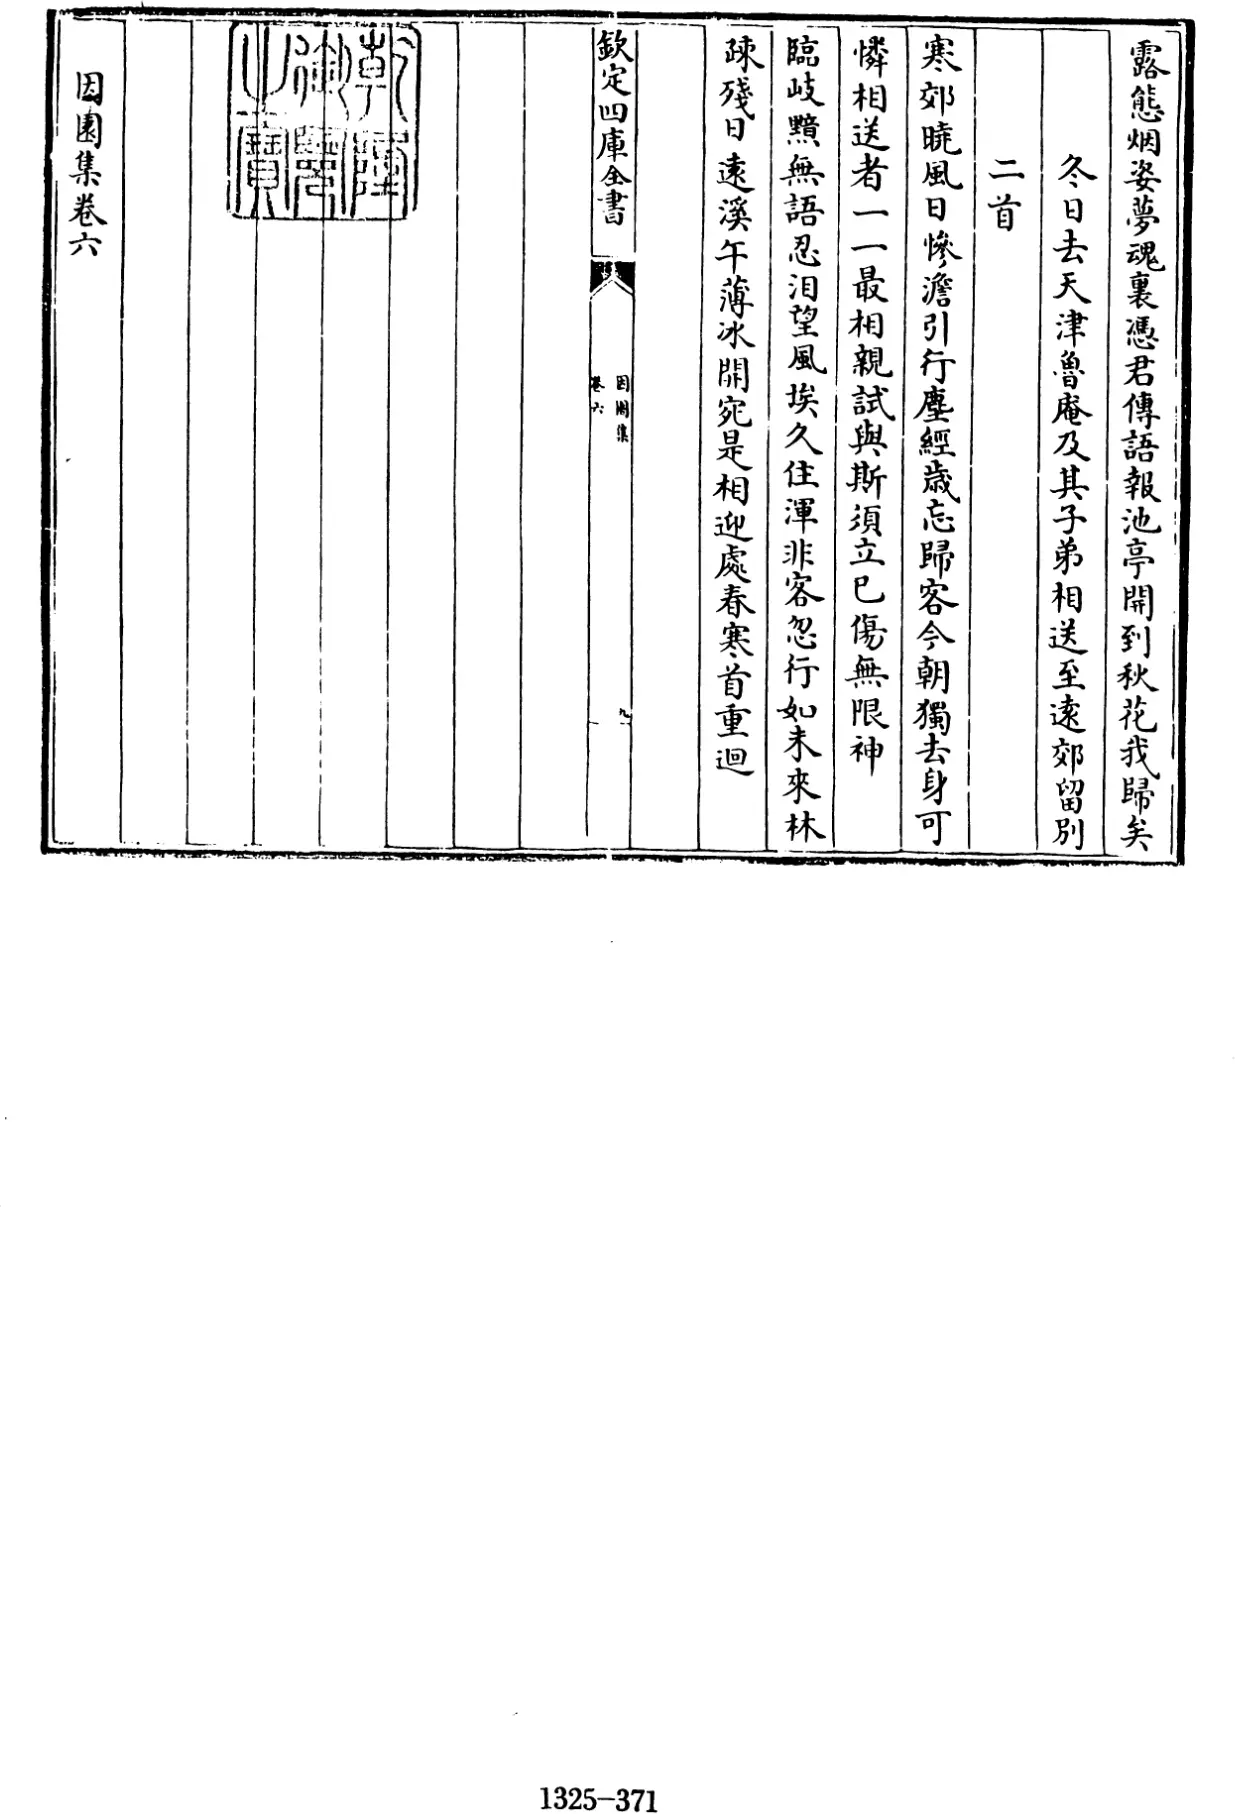 露態烟姿夢魂裏憑君傳語報池亭開到秋花我歸矣
冬日去天津魯庵及其子弟相送至遠郊留別
二首
寒郊曉風日慘澹引行塵經歲忘歸客今朝獨去身可
憐相送者一一最相親試與斯須立已傷無限神
臨岐黯無語忍泪望風埃久住渾非客忽行如未來林
疎殘日遠溪午薄冰開宛是相迎處春寒首重迴
欽定四庫全書
因園集
卷六
九
乾隆御覽之寶
因園集卷六
1325-371